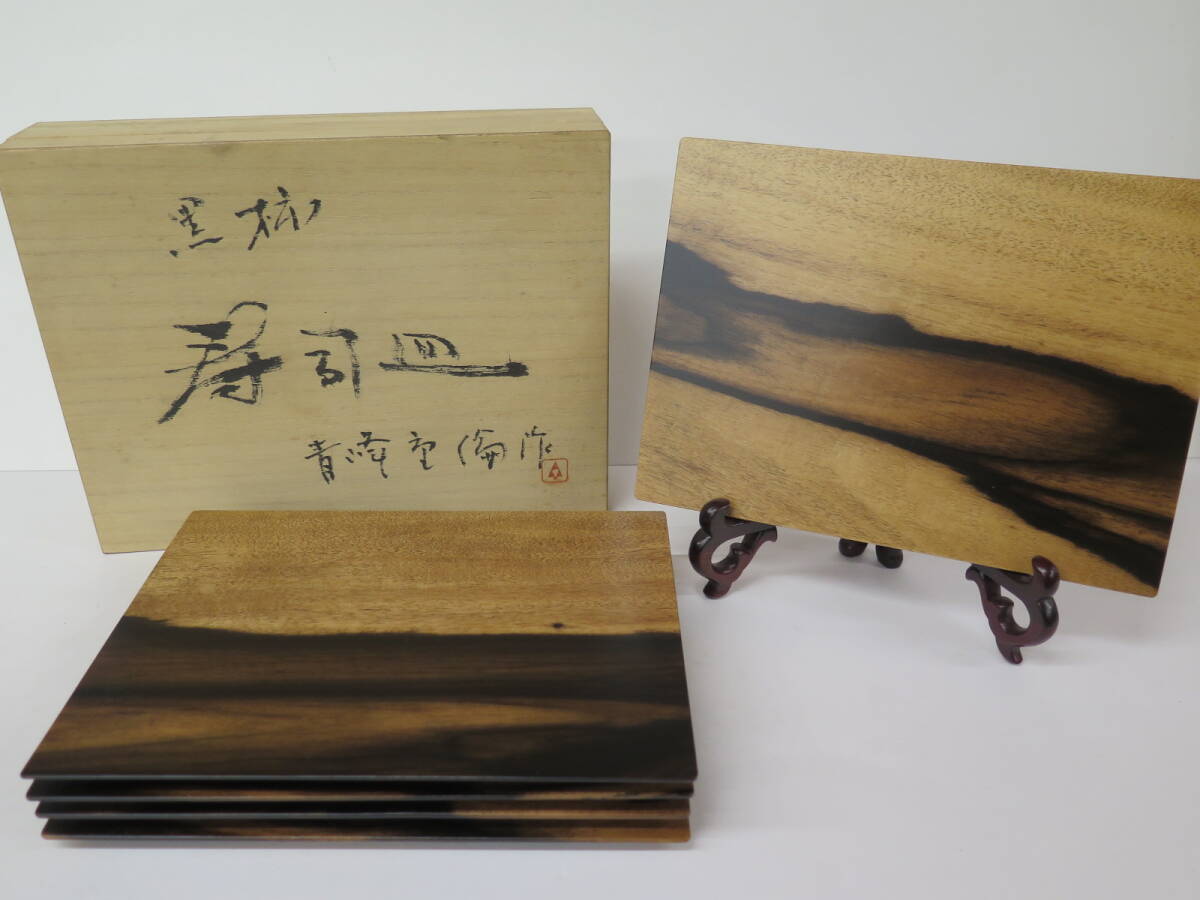 黒柿
寿司皿
青峰重倫作